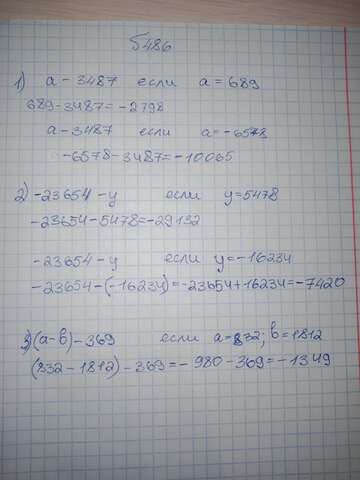 Б486
1) a - 3487 если a = 689
689-3487=-2798
a-3487 если a=-6578
-6578-3487=-10065
2) -23654-y если y=5478
-23654-5478=-29132
-23654-y если y=-16234
-23654-(-16234)=-23654+16234=-7420
3) (a-b)-369 если a=832; b=1812
(832-1812)-369=-980-369=-1349